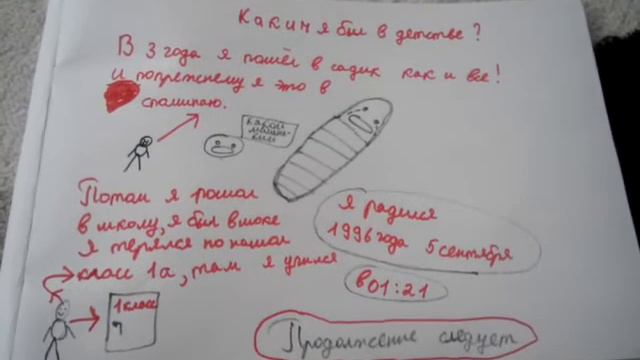 Каким я был в детстве?
В 3 года я пошёл в садик как и все!
И попрежнему я это в
спашинаю.
какой
маши-
ким
Потом я пошол
в школу, я был в шоке
я терялся но нашол
класс 1а, там я учился
я радился
1996 года 5 сентября
в 01:21
1 класс
Продолжение следует